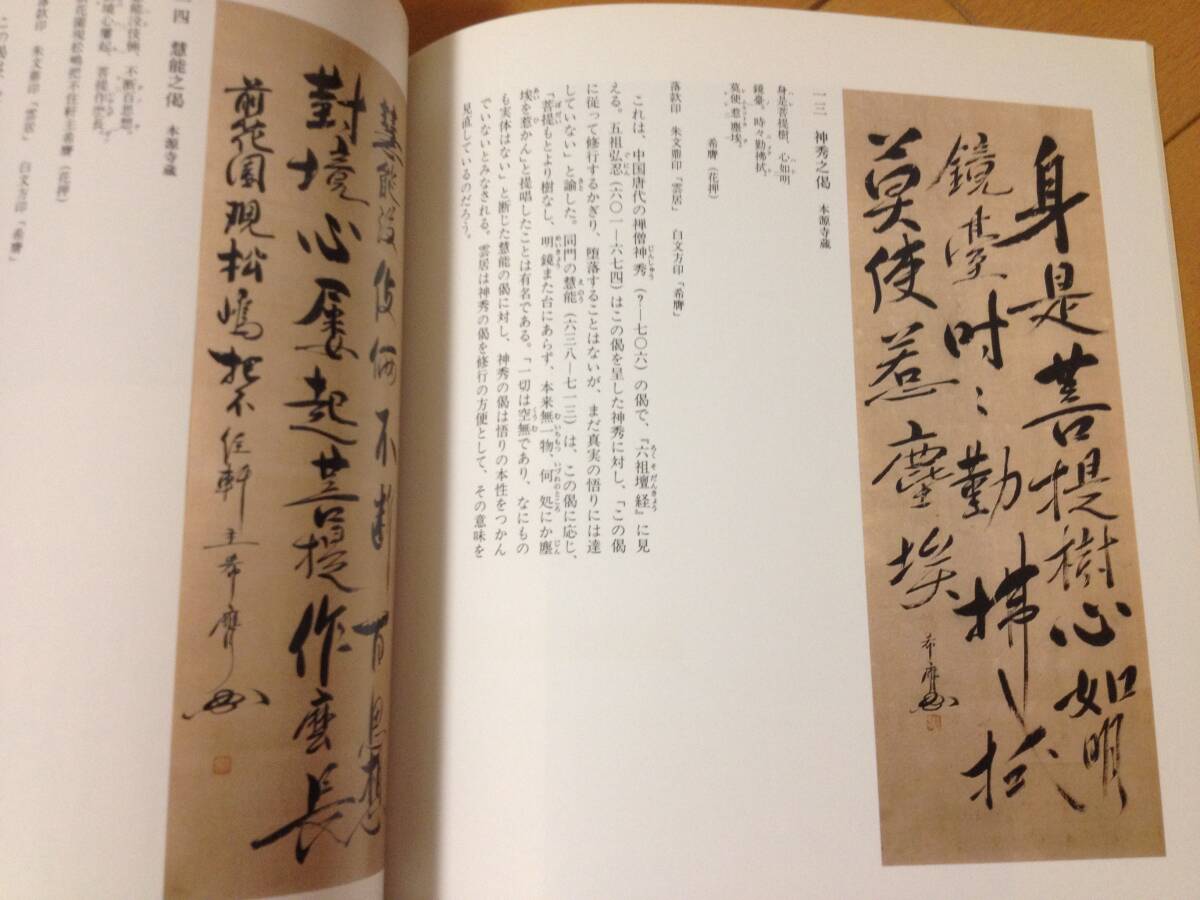 身是菩提樹心如明
鏡臺時々勤拂々拭
莫使惹塵埃
希膺
一三　神秀之偈　本源寺蔵
身是菩提樹、心如明
鏡臺。時々勤拂拭、
莫使惹塵埃。
希膺（花押）
落款印　朱文鼎印「雲居」　白文方印「希膺」
これは、中国唐代の禅僧神秀（？—七〇六）の偈で、『六祖壇経』に見
える。五祖弘忍（六〇一—六七四）はこの偈を呈した神秀に対し、「この偈
に従って修行するかぎり、堕落することはないが、まだ真実の悟りには達
していない」と諭した。同門の慧能（六三八—七一三）は、この偈に応じ、
「菩提もとより樹なし、明鏡また台にあらず、本来無一物、何処にか塵
埃を惹かん」と提唱したことは有名である。「一切は空無であり、なにもの
も実体はない」と断じた慧能の偈に対し、神秀の偈は悟りの本性をつかん
でいないとみなされる。雲居は神秀の偈を修行の方便として、その意味を
見直しているのだろう。
慧能没伎倆不断百思想
對境心屡起菩提作麼長
前花園現松嶋把不住軒主希膺
一四　慧能之偈　本源寺蔵
慧能没伎倆、不断百思想。
對境心屡起、菩提作麼長。
前花園現松嶋把不住軒主希膺（花押）
落款印　朱文鼎印「雲居」　白文方印「希膺」
この偈は、